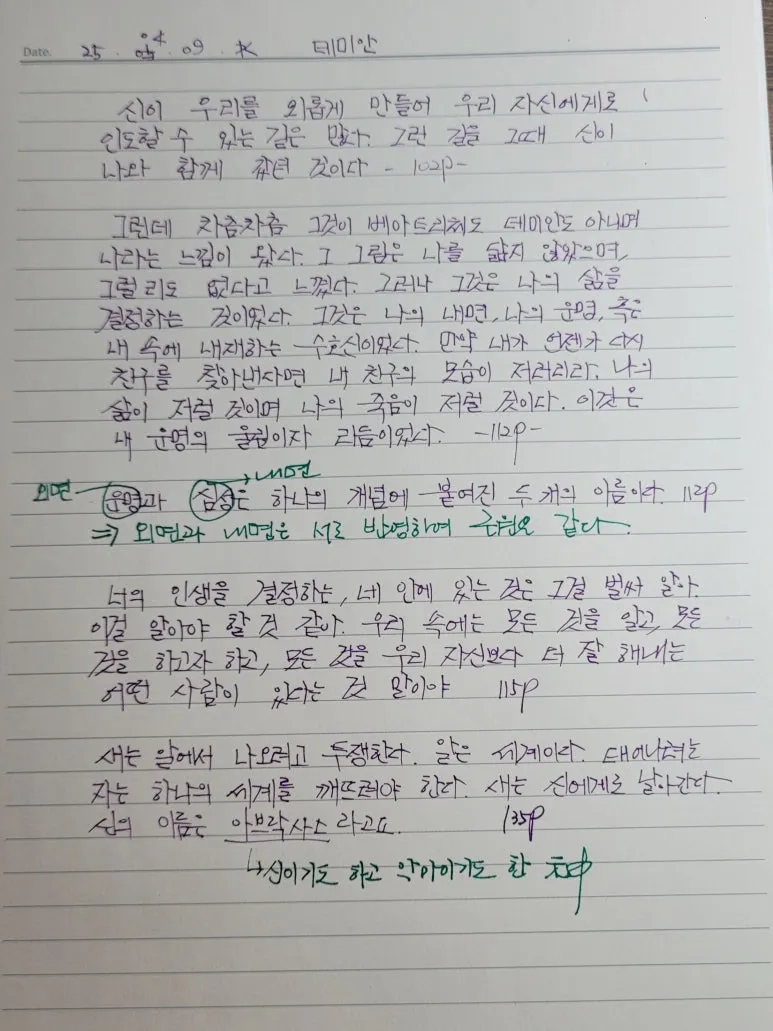 Date. 25. 04. 09. 水 데미안
신이 우리를 외롭게 만들어 우리 자신에게로
인도할 수 있는 길은 많다. 그런 길을 그때 신이
나와 함께 갔던 것이다 - 102p-
그런데 차츰차츰 그것이 베아트리체도 데미안도 아니며
나라는 느낌이 왔다. 그 그림은 나를 닮지 않았으며,
그럴 리도 없다고 느꼈다. 그러나 그것은 나의 삶을
결정하는 것이었다. 그것은 나의 내면, 나의 운명, 혹은
내 속에 내재하는 수호신이었다. 만약 내가 언젠가 다시
친구를 찾아낸다면 내 친구의 모습이 저러리라. 나의
삶이 저럴 것이며 나의 죽음이 저럴 것이다. 이것은
내 운명의 울림이자 리듬이었다. -112p-
외면 → 내면
운명과 심성은 하나의 개념에 붙여진 두 개의 이름이다. 112p
⇒ 외면과 내면은 서로 반영하며 근원은 같다.
너의 인생을 결정하는, 네 안에 있는 것은 그걸 벌써 알아.
이걸 알아야 할 것 같아. 우리 속에는 모든 것을 알고, 모든
것을 하고자 하고, 모든 것을 우리 자신보다 더 잘 해내는
어떤 사람이 있다는 것 말이야 115p
새는 알에서 나오려고 투쟁한다. 알은 세계이다. 태어나려는
자는 하나의 세계를 깨뜨려야 한다. 새는 신에게로 날아간다.
신의 이름은 아브락사스 라고요. 135p
↳ 신이기도 하고 악마이기도 한 神